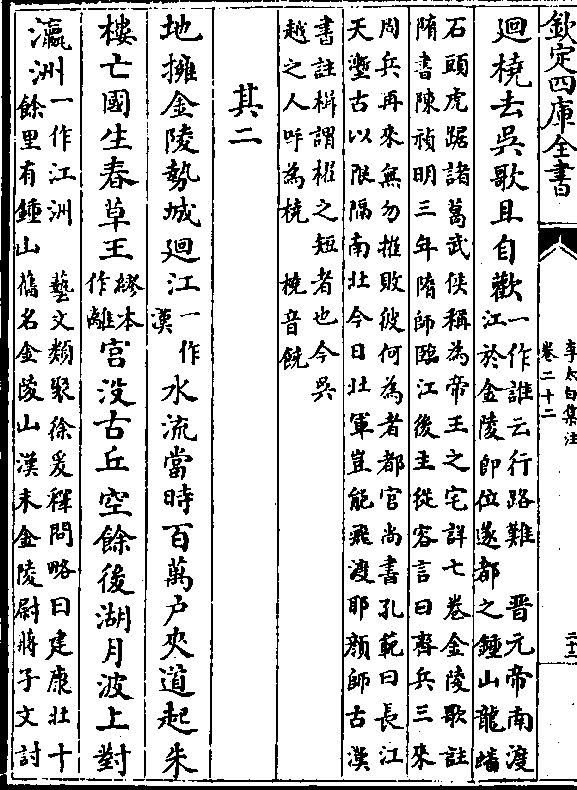 欽定四庫全書
李太白集注
卷二十二
廻橈去吳歌且自歡
一作誰云行路難 晋元帝南渡
江於金陵即位遂都之鍾山龍蟠
石頭虎踞諸葛武侯稱為帝王之宅詳七卷金陵歌註
隋書陳禎明三年隋師臨江後主從容言曰齊兵三來
周兵再來無勿摧敗彼何為者都官尚書孔範曰長江
天塹古以限隔南北今日北軍豈能飛渡耶顔師古漢
書註楫謂櫂之短者也今吳
越之人呼為橈 橈音饒
其二
地擁金陵勢城廻江一作漢水流當時百萬户夾道起朱
樓亡國生春草王繆本作離宫没古丘空餘後湖月波上對
瀛洲
一作江洲 藝文類聚徐爰釋問略曰建康北十
餘里有鍾山舊名金陵山漢末金陵尉蔣子文討